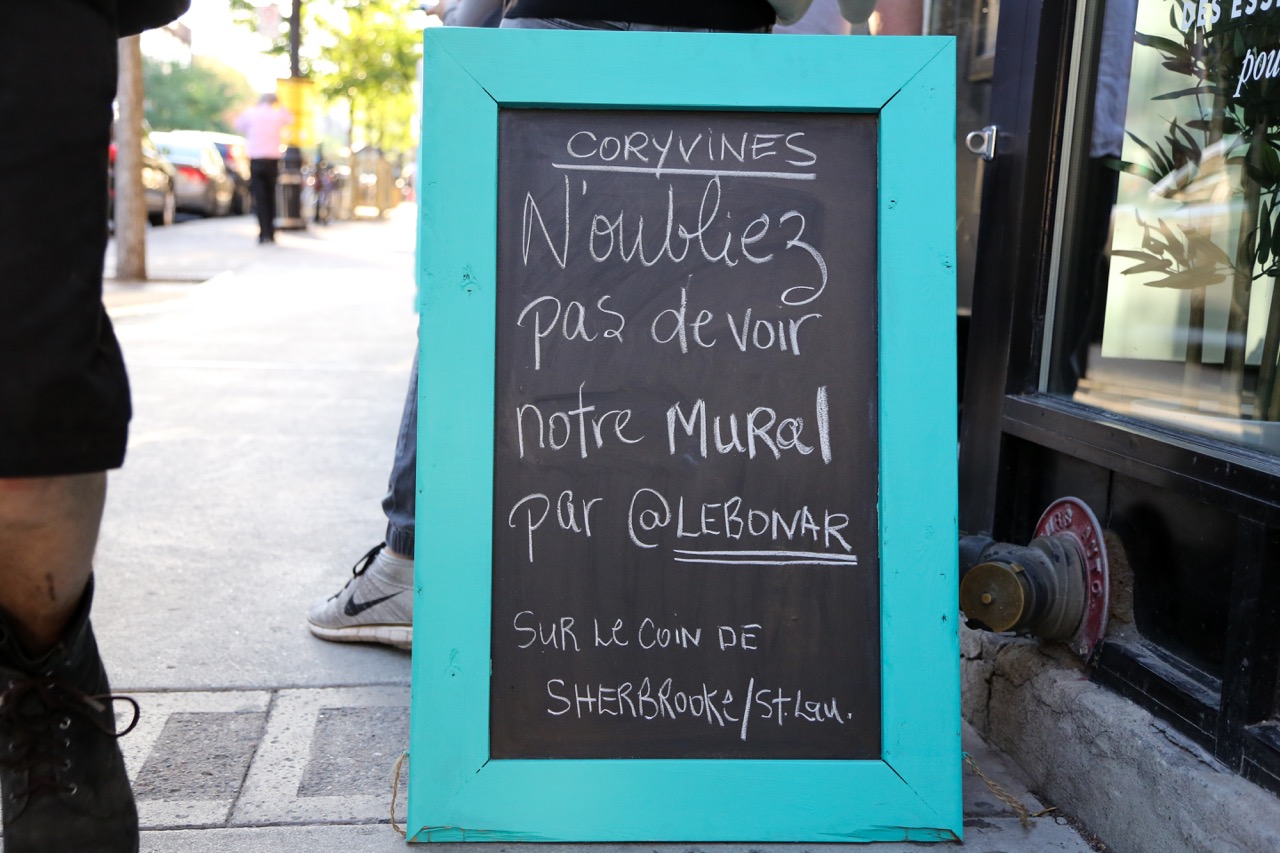 CORYVINES
N'oubliez
pas de voir
notre MURal
par @LEBONAR
SUR LE COIN DE
SHERBROOKE/St.Lau.
DES ESS
pou